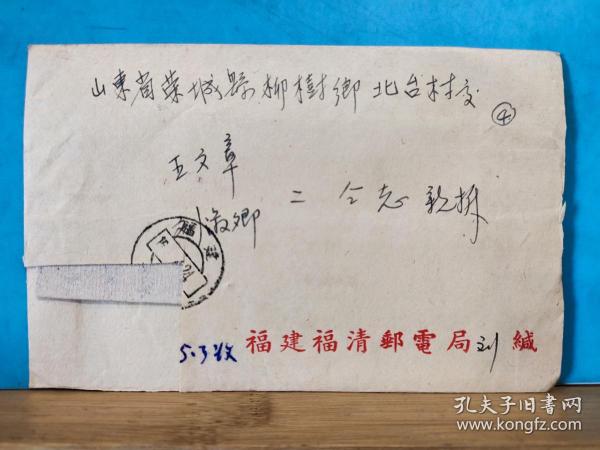 山東省荣城縣柳樹鄉北台村交
④
王文章
淑卿 二仝志親拆
福 清
5.3收 福建福清郵電局 刘 緘
孔夫子旧书网
www.kongfz.com